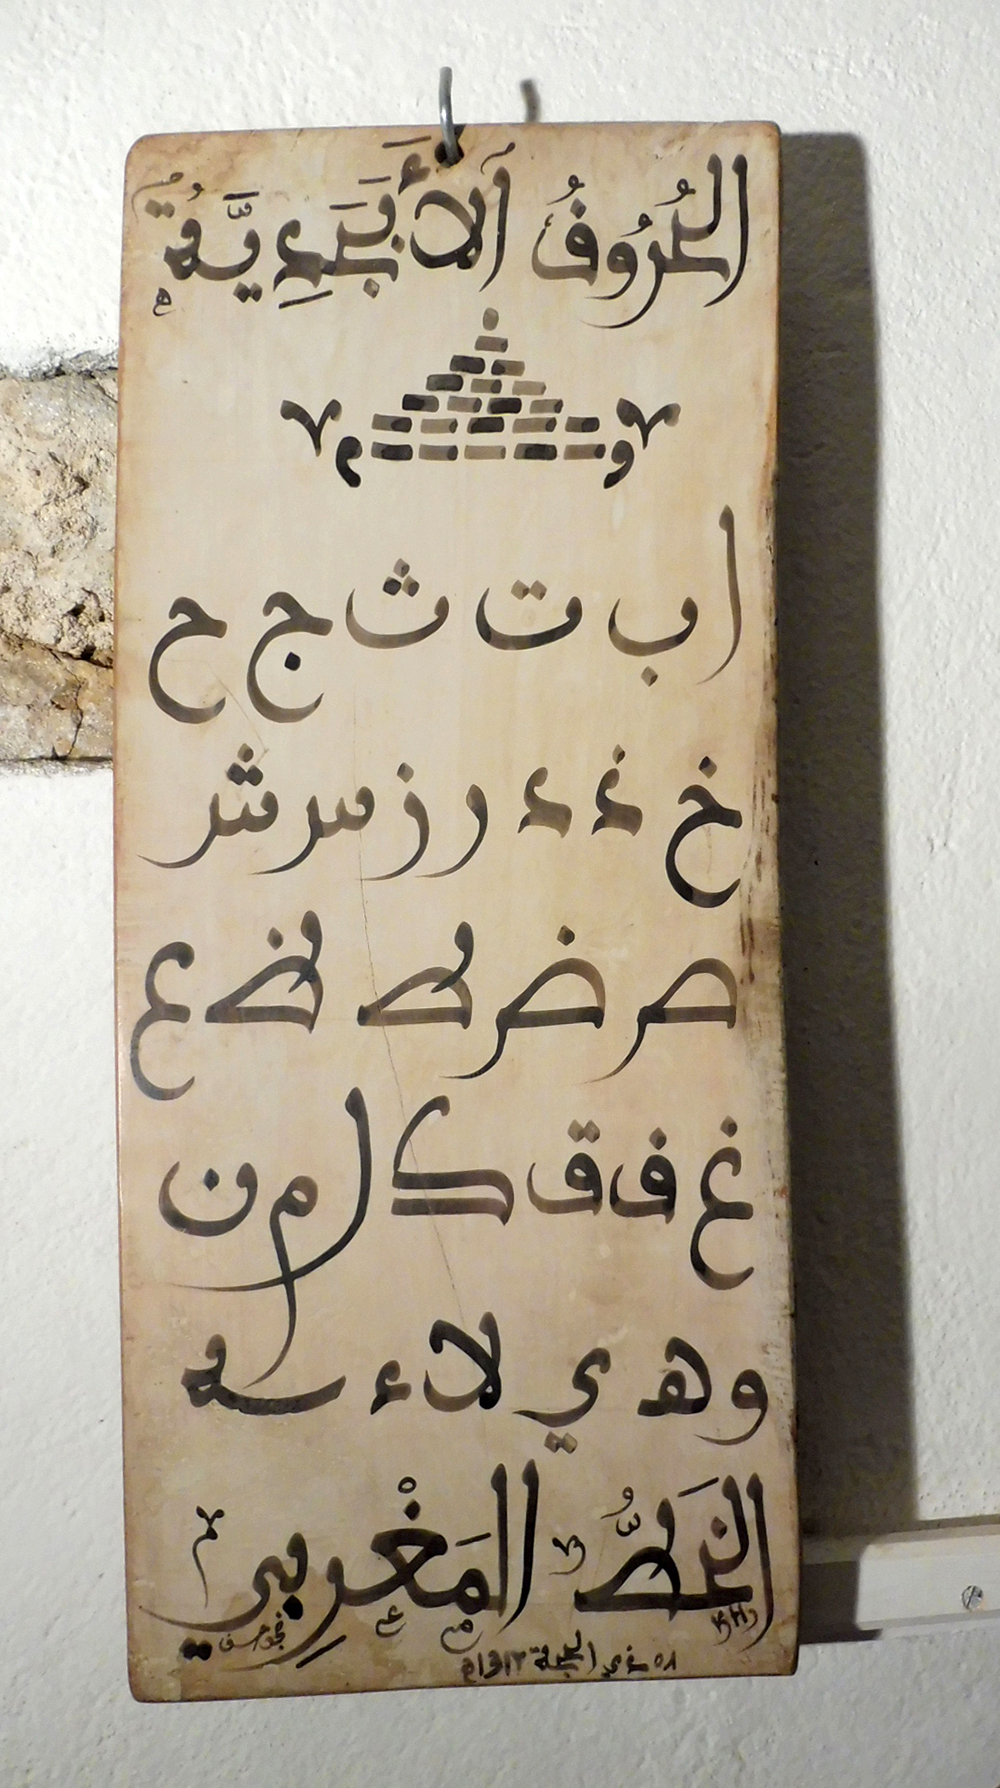 الحُرُوفُ اَلأَبَجَدِيَّةُ
ا ب ت ث ج ح
خ ذ د ر ز س ش
ص ض ط ظ ع
غ ف ق ك ل م ن
و هـ ي لا ء سه
الخَطُّ المَغْرِبي
ذي الحجة